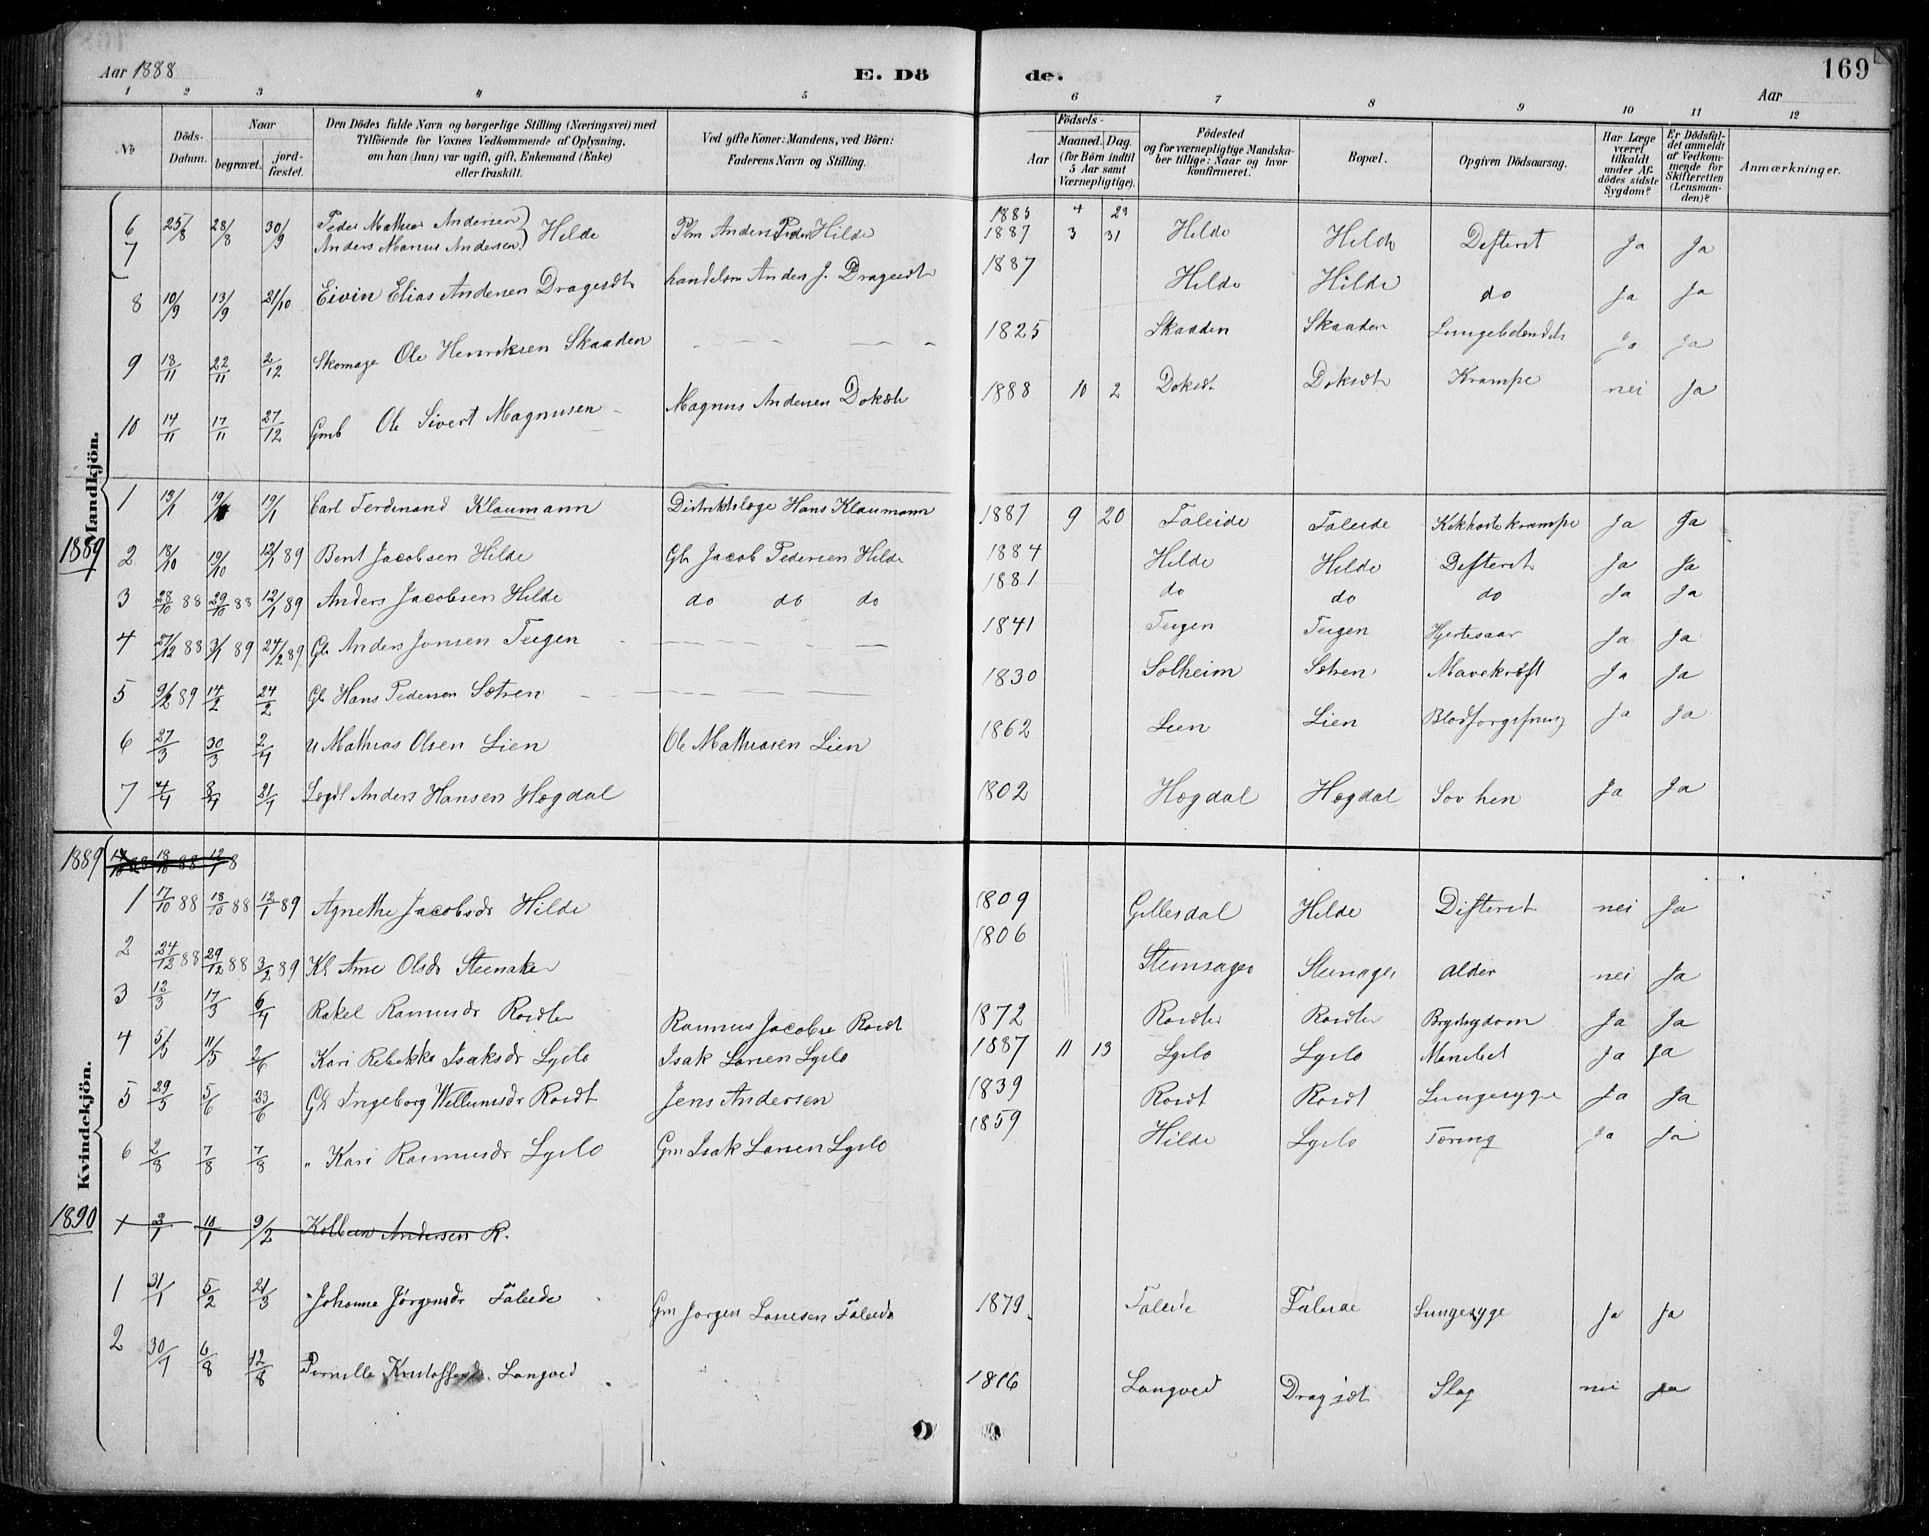 Aar 1888
E. Döde.
169
Aar
1 2 3 4 5 6 7 8 9 10 11 12
No
Döds-Datum.
Naar
begravet.
jordfæstet.
Den Dödes fulde Navn og borgerlige Stilling (Næringsvei) med
Tilföiende for Voxnes Vedkommende af Oplysning,
om han (hun) var ugift, gift, Enkemand (Enke)
eller fraskilt.
Ved gifte Koner: Mandens, ved Börn:
Faderens Navn og Stilling.
Födsels-
Aar
Maaned. Dag.
(for Börn indtil
5 Aar samt
Værnepligtige).
Födested
og for værnepligtige Mandskaber tillige: Naar og hvor
konfirmeret.
Bopæl.
Opgiven Dödsaarsag.
Har Læge været tilkaldt under Afdödes sidste Sygdom?
Er Dödsfaldet anmeldt af Vedkommende for Skifteretten (Lensmanden)?
Anmærkninger.
Mandkjön.
6 25/8 28/8 30/9 Peder Mathias Andersen } Hilde Plm Anders Peders Hilde 1885 4 29 Hilde Hilde Defterit Ja Ja
7 Anders Marius Andersen 1887 3 31
8 10/9 13/9 21/10 Eivin Elias Andersen Dragesdt handelsm Anders J. Dragesdt 1887 Hilde Hilde do Ja Ja
9 18/11 22/11 2/12 Skomage Ole Henriksen Skaaden 1825 Skaaden Skaaden Lungebetændels Ja Ja
10 14/11 17/11 27/12 Gmb Ole Sivert Magnusen Magnus Andersen Doksdt 1888 10 2 Doksdt Doksdt Krampe nei Ja
1889
1 13/1 19/1 19/1 Carl Ferdinand Klaumann Distriktslæge Hans Klaumann 1887 9 20 Faleide Faleide Kikhoste krampe Ja Ja
2 18/10 19/10 12/1 89 Bent Jacobsen Hilde Gb Jacob Pedersen Hilde 1884 Hilde Hilde Defterit Ja Ja
3 28/10 88 29/10 88 12/1 89 Anders Jacobsen Hilde do do do 1881 do do do Ja Ja
4 27/12 88 3/1 89 24/2 89 Gb Anders Jonsen Tugen 1841 Tugen Tugen Hjertesaar Ja Ja
5 9/2 89 14/2 24/2 Gb Hans Pedersen Sætren 1830 Solheim Sætren Mavekræft Ja Ja
6 27/3 30/3 2/4 U Mathias Olsen Lien Ole Mathiasen Lien 1862 Lien Lien Blodforgiftning Ja Ja
7 4/4 8/4 21/4 Lægdl Anders Hansen Hogdal 1802 Hogdal Hogdal Sov hen Ja Ja
Kvindekjön.
1889
1 17/10 88 18/10 88 12/1 89 Agnethe Jacobsdr Hilde 1809 Gillesdal Hilde Difterit nei Ja
2 24/12 88 29/12 88 3/2 89 Kl Ane Olsdr Steensker 1806 Steinsager Steinsager Alder nei Ja
3 12/3 17/3 6/4 Rakel Rasmusdr Rosdt Rasmus Jacobse Rosdt 1872 Rosdt Rosdt Brystsygdom Ja Ja
4 5/5 11/5 2/6 Kari Rebekke Isaksdr Lyslo Isak Larsen Lyslo 1887 11 13 Lyslo Lyslo Ja Ja
5 29/5 5/6 23/6 Gk Ingeborg Willumsdr Rosdt Jens Andersen 1839 Rosdt Rosdt Lungesyge Ja Ja
6 2/8 7/8 7/8 " Kari Rasmusdr Lyslo Gm Isak Larsen Lyslo 1859 Hilde Lyslo Tæring Ja Ja
1890
1 3/1 10/1 9/2 Kolbein Andersen R.
1 31/1 5/2 21/3 " Johanne Jørgensdr Faleide Gm Jørgen Larsen Faleide 1879 Faleide Faleide Lungesyge Ja Ja
2 30/7 6/8 12/8 Pernille Langved 1816 Langved Dragsdt Slag nei Ja